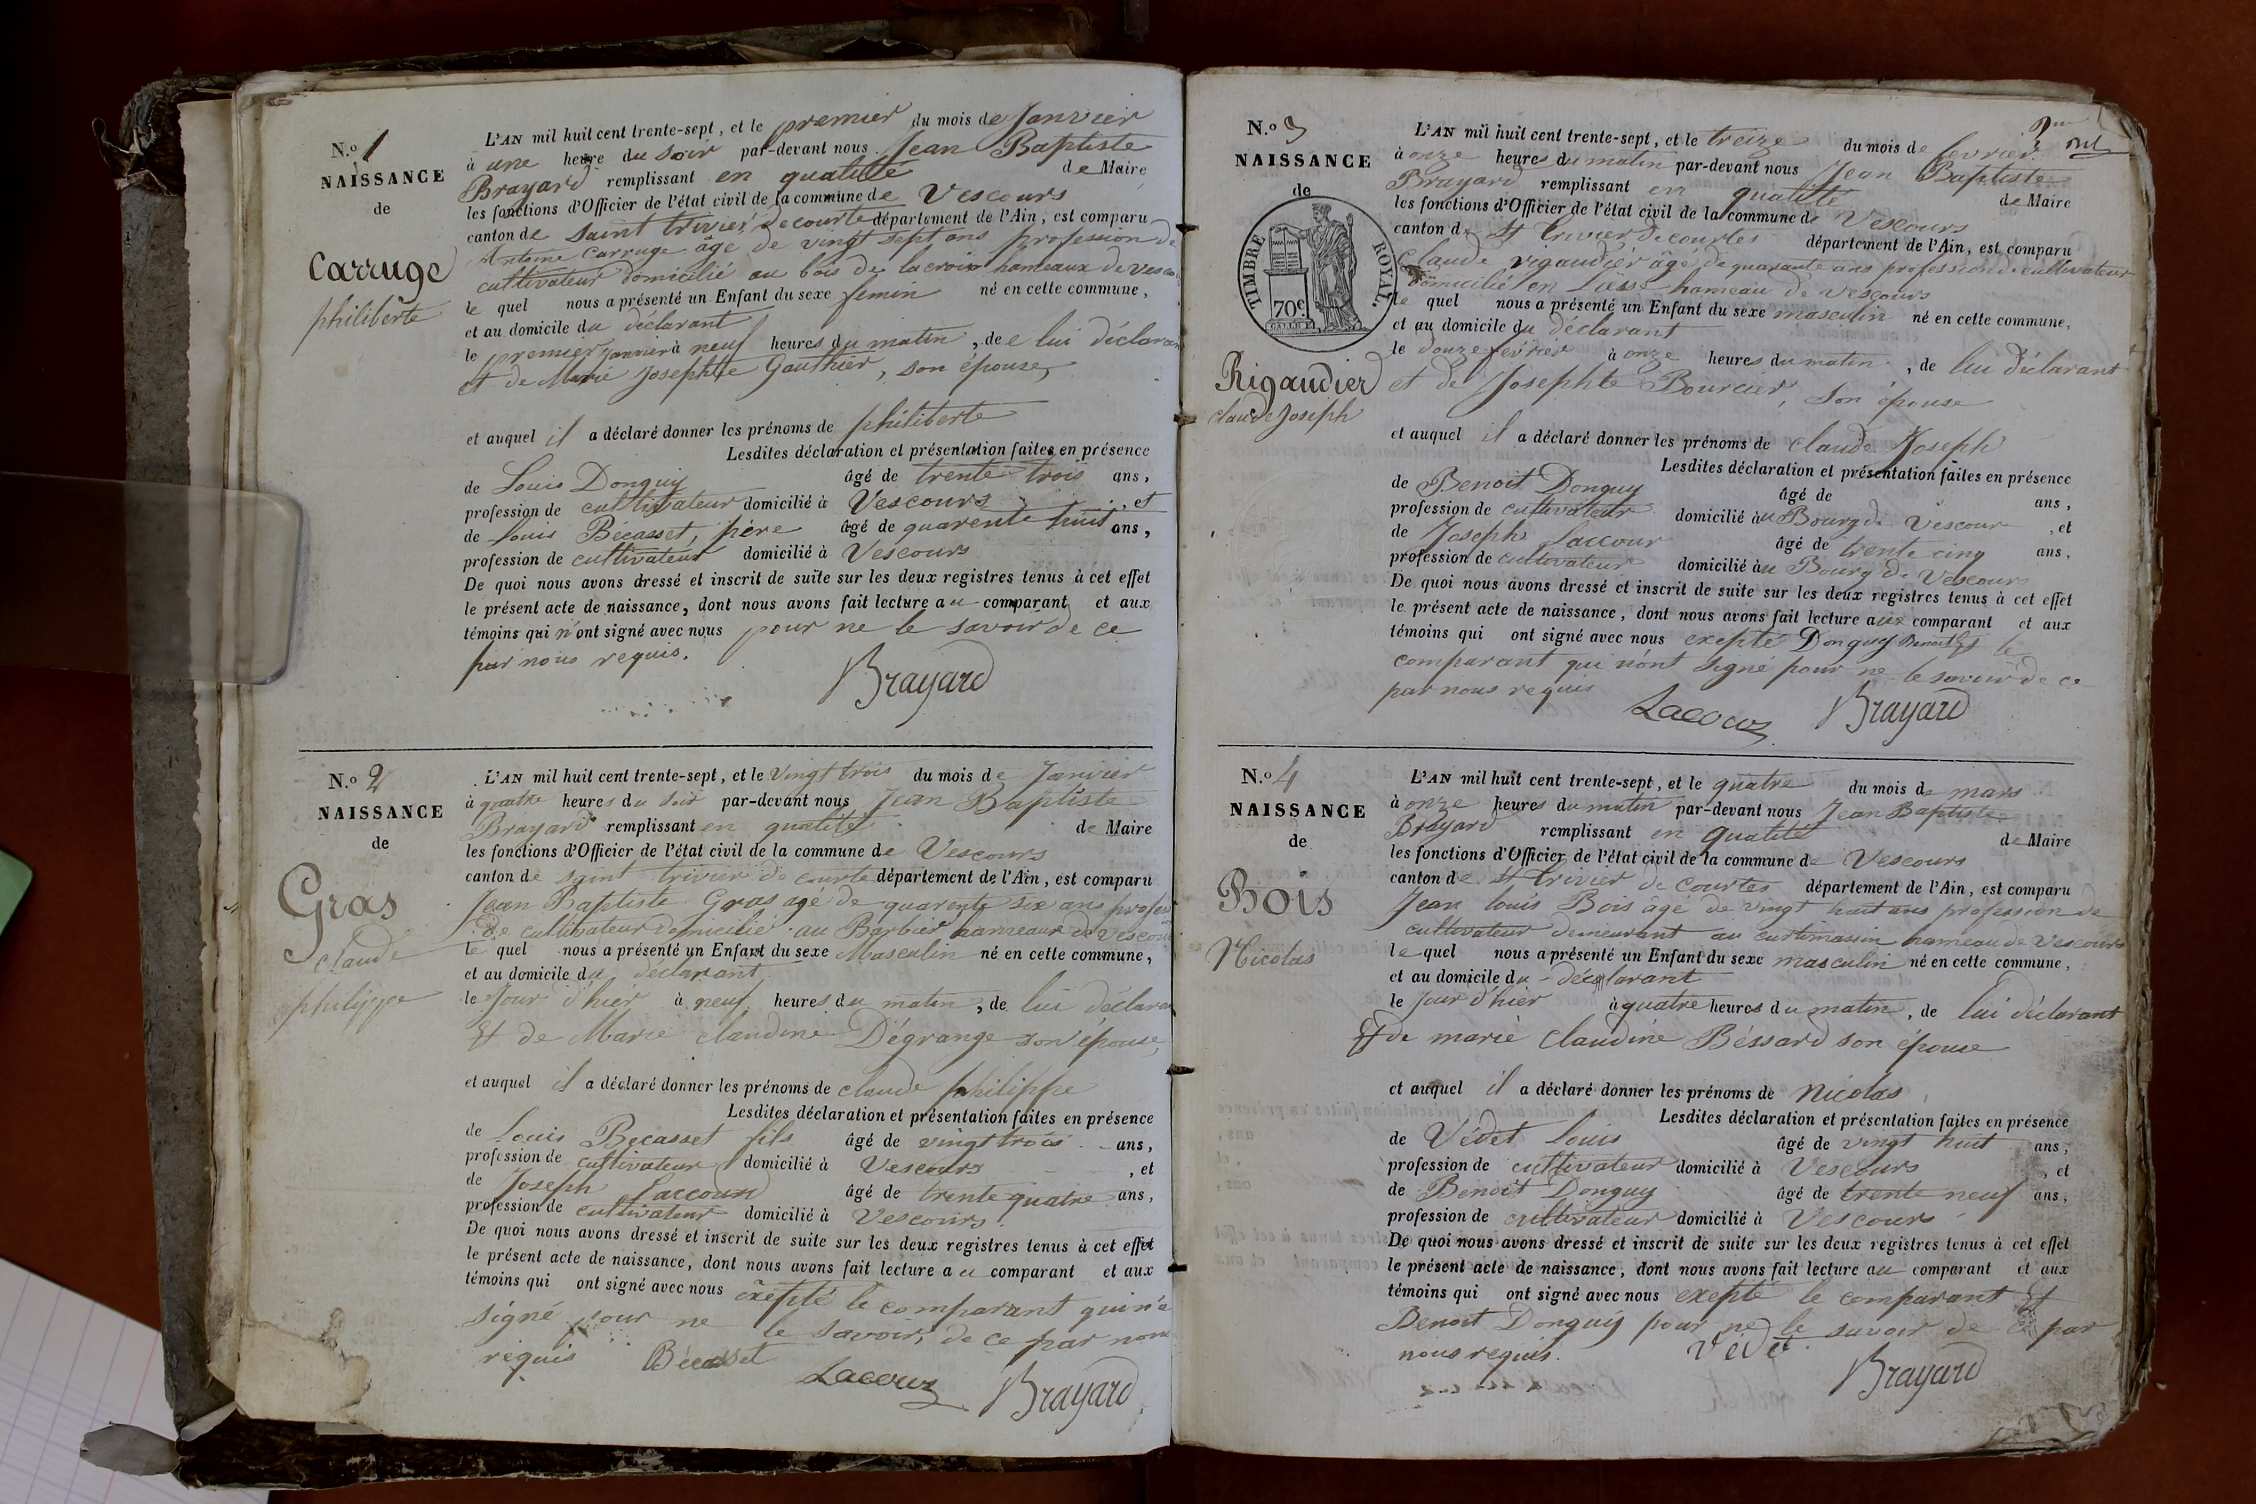 N.o 1
NAISSANCE
de
Carruge
philiberte
L'AN mil huit cent trente-sept, et le premier du mois de Janvier
à une heure du soir par-devant nous Jean Baptiste
Brayard remplissant en qualité de Maire
les fonctions d'Officier de l'état civil de la commune de Vescours
canton de Saint trivier de courte département de l'Ain, est comparu
Antoine Carruge âgé de vingt sept ans profession de
cultivateur domicilié au bois de lacroix hameaux de
le quel nous a présenté un Enfant du sexe femin né en cette commune,
et au domicile du déclarant
le premier janvier à neuf heures du matin, de lui déclarant
et de Marie Josephte Gauthier, son épouse,
et auquel il a déclaré donner les prénoms de philiberte
Lesdites déclaration et présentation faites en présence
de Louis Donguy âgé de trente trois ans,
profession de cultivateur domicilié à Vescours, et
de Louis Bécasset, père âgé de quarente huit ans,
profession de cultivateur domicilié à Vescours
De quoi nous avons dressé et inscrit de suite sur les deux registres tenus à cet effet
le présent acte de naissance, dont nous avons fait lecture au comparant et aux
témoins qui n'ont signé avec nous pour ne le savoir de ce
par nous requis.
Brayard
N.o 2
NAISSANCE
de
Gras
claude
philippe
L'AN mil huit cent trente-sept, et le vingt trois du mois de Janvier
à quatre heures du soir par-devant nous Jean Baptiste
Brayard remplissant en qualité de Maire
les fonctions d'Officier de l'état civil de la commune de Vescours
canton de saint trivier de courte département de l'Ain, est comparu
Jean Baptiste Gras agé de quarente six ans
de cultivateur domicilié au Barbier hameaux de
le quel nous a présenté un Enfant du sexe Masculin né en cette commune,
et au domicile du déclarant
le Jour d'hier à neuf heures du matin, de lui
Et de Marie claudine Dégrange son épouse,
et auquel il a déclaré donner les prénoms de claude philippe
Lesdites déclaration et présentation faites en présence
de Louis Becasset fils âgé de vingt trois ans,
profession de cultivateur domicilié à Vescours, et
de Joseph âgé de trente quatre ans,
profession de cultivateur domicilié à Vescours.
De quoi nous avons dressé et inscrit de suite sur les deux registres tenus à cet effet
le présent acte de naissance, dont nous avons fait lecture au comparant et aux
témoins qui ont signé avec nous exepté le comparant qui n'a
signé pour ne le savoir, de ce par nous
requis Bécasset
Lacour Brayard
N.o 3
NAISSANCE
de
TIMBRE ROYAL.
70c.
Rigaudier
claude Joseph
L'AN mil huit cent trente-sept, et le treize du mois de fevrier
à onze heures du matin par-devant nous Jean Baptiste
Brayard remplissant en qualité de Maire
les fonctions d'Officier de l'état civil de la commune de Vescours
canton de St trivier de courtes département de l'Ain, est comparu
Claude rigaudier âgé de quarante ans profession de cultivateur
domicilié en hameau de Vescours
le quel nous a présenté un Enfant du sexe masculin né en cette commune,
et au domicile du déclarant
le douze février à onze heures du matin, de lui déclarant
et de Josephte Bourcier, son épouse
et auquel il a déclaré donner les prénoms de claude Joseph
Lesdites déclaration et présentation faites en présence
de Benoit Donguy âgé de ans,
profession de cultivateur domicilié au Bourg de Vescour, et
de Joseph Laccour âgé de trente cinq ans,
profession de cultivateur domicilié au Bourg de Vescours
De quoi nous avons dressé et inscrit de suite sur les deux registres tenus à cet effet
le présent acte de naissance, dont nous avons fait lecture aux comparant et aux
témoins qui ont signé avec nous exepté Donguy Benoit Et le
comparant qui n'ont signé pour ne le savoir de ce
par nous requis
Lacour Brayard
N.o 4
NAISSANCE
de
Bois
Nicolas
L'AN mil huit cent trente-sept, et le quatre du mois de mars
à onze heures du matin par-devant nous Jean Baptiste
Brayard remplissant en qualité de Maire
les fonctions d'Officier de l'état civil de la commune de Vescours
canton de St trivier de Courtes département de l'Ain, est comparu
Jean louis Bois âgé de vingt huit ans profession de
cultivateur demeurant au curtimasin hameau de Vescours
le quel nous a présenté un Enfant du sexe masculin né en cette commune,
et au domicile du déclarant
le jour d'hier à quatre heures du matin, de lui déclarant
Et de marie Claudine Béssard son épouse
et auquel il a déclaré donner les prénoms de Nicolas
Lesdites déclaration et présentation faites en présence
de Védet louis âgé de vingt huit ans,
profession de cultivateur domicilié à Vescours, et
de Benoît Donguy âgé de trente neuf ans,
profession de cultivateur domicilié à Vescours
De quoi nous avons dressé et inscrit de suite sur les deux registres tenus à cet effet
le présent acte de naissance, dont nous avons fait lecture au comparant et aux
témoins qui ont signé avec nous exepté le comparant Et
Benoit Donguy pour ne le savoir de ce par
nous requis. Védet
Brayard